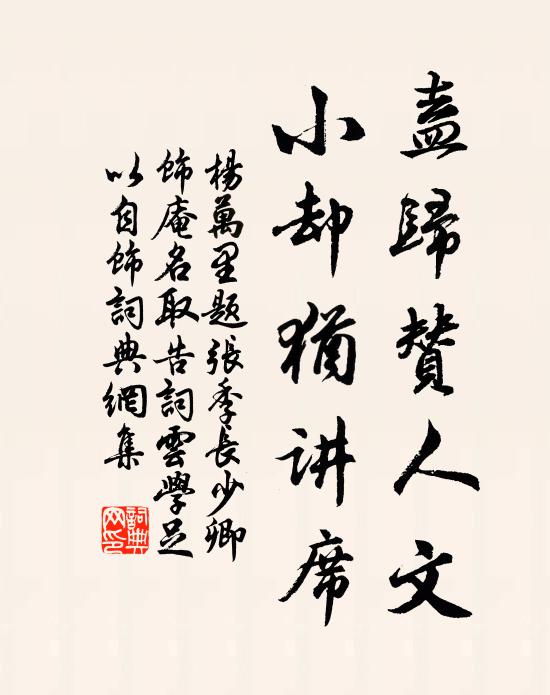 盍歸賛人文
小却猶讲席
楊萬里題張季長少卿
飾庵名取告詞雲學足
以自飾詞典網集
詞典网印